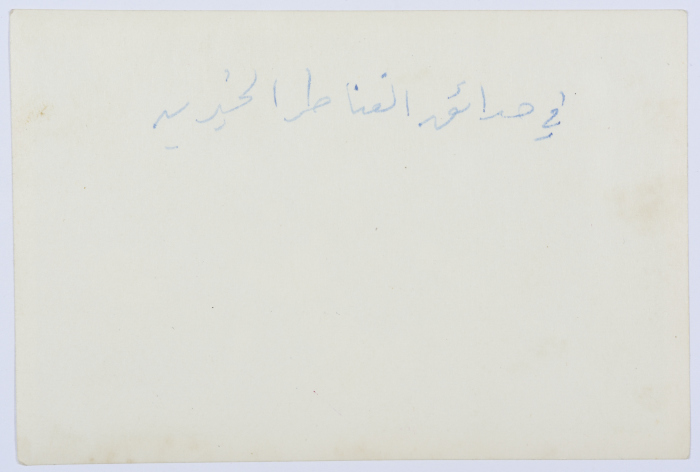 في حدائق القناطر الخيريه